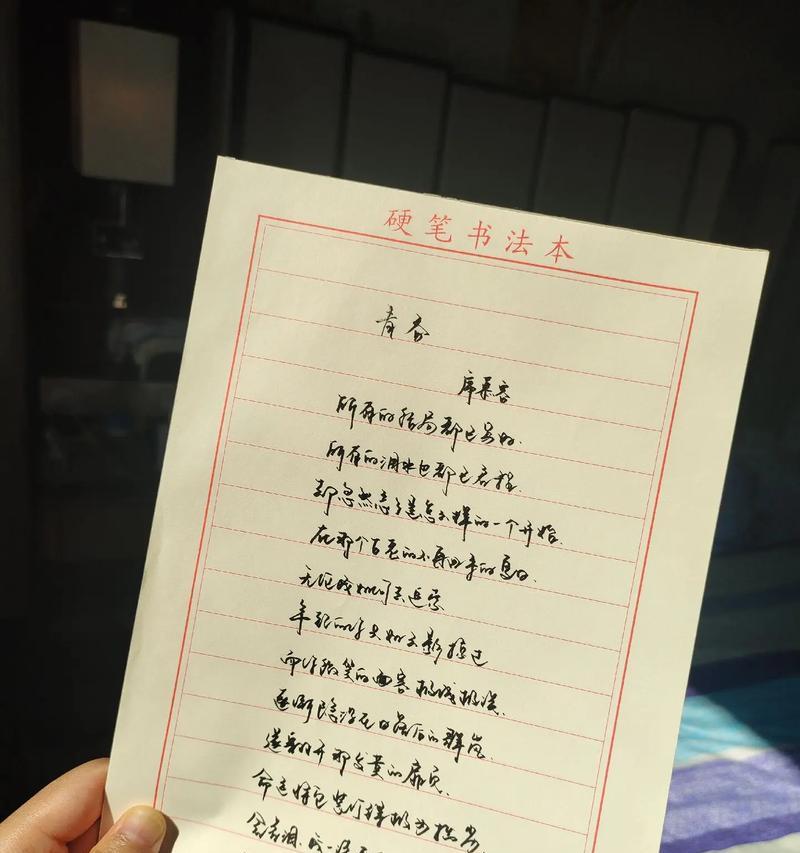 硬笔书法本
青春
席慕容
所有的结局都已写好.
所有的泪水也都已启程.
却忽然忘了是怎么样的一个开始.
在那个古老的不再回来的夏日.
无论我如何去追索
年轻的你只如云影掠过
而你微笑的面容极浅极淡.
逐渐隐没在日落后的群岚.
遂翻开那发黄的扉页.
命运将它装订得极为拙劣
含着泪.我一读